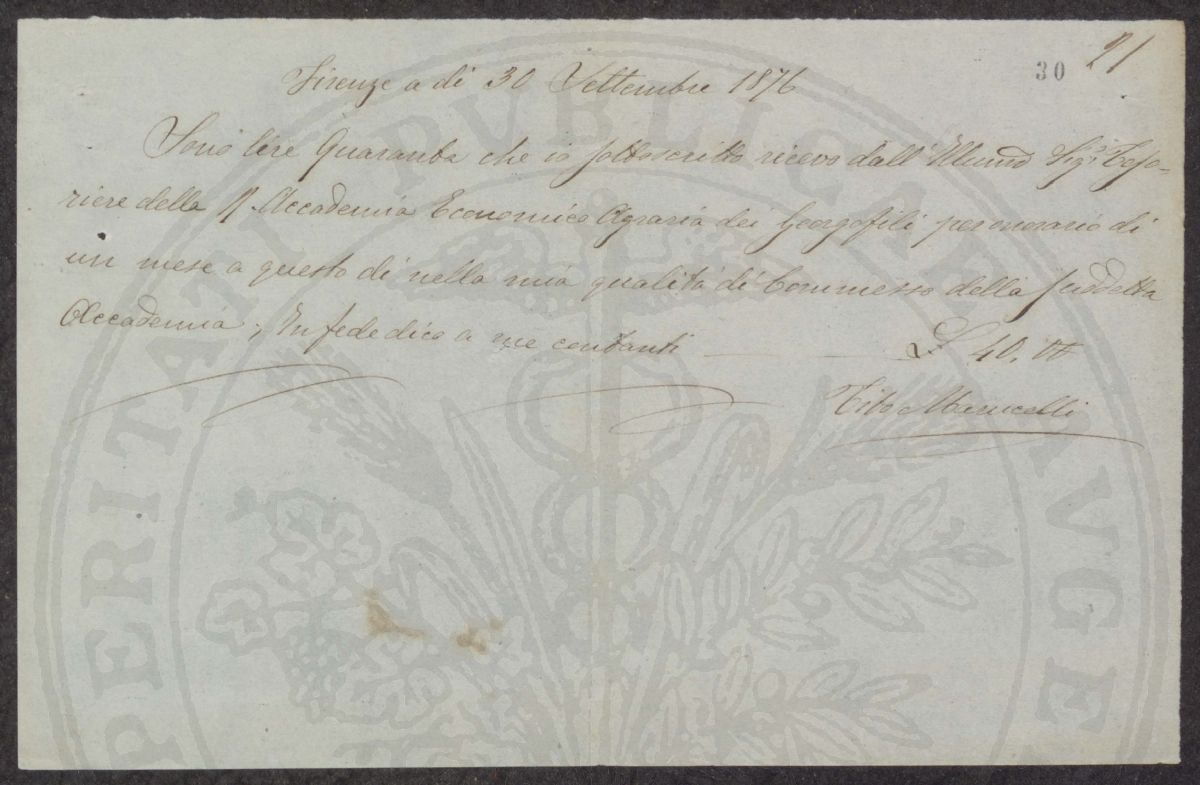 30
21
Firenze a di 30 Settembre 1876
Sono lire Quaranta che io sottoscritto ricevo dall' Illumo Sigr Teso-
riere della R. Accademia Economico Agraria dei Georgofili per onorario di
un mese a questo di nella mia qualità di Commesso della suddetta
Accademia, In fede dico a me contanti £ 40. 00
Tito
PERITATI PVBLICAE AVGE